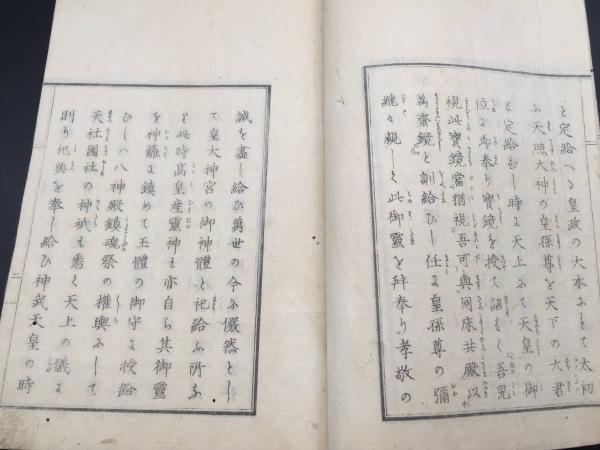 を定給へる皇政の大本にして太初
に天照大神の皇孫尊を天下の大君
と定給ひし時に天上にて天皇の御
位に即奉り寶鏡を授て詔はく吾兒
視此寶鏡當猶視吾可與同床共殿以
爲齋鏡と訓給ひし任に皇孫尊の彌
繼々親しく此御靈を拜奉り孝敬の
誠を盡し給ひ萬世の今に儼然とし
て皇大神宮の御神體と祀給ふ所な
り此時高皇産靈神も亦自ら其御靈
を神籬に鎮めて玉體の御守に授給
ひしハ八神殿鎮魂祭の權輿にして
天社國社の神祇も悉く天上の儀に
則り祀典を奉し給ひ神武天皇の時